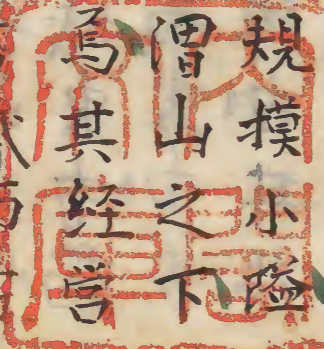 規摸小隘
渭山之下
焉其経営